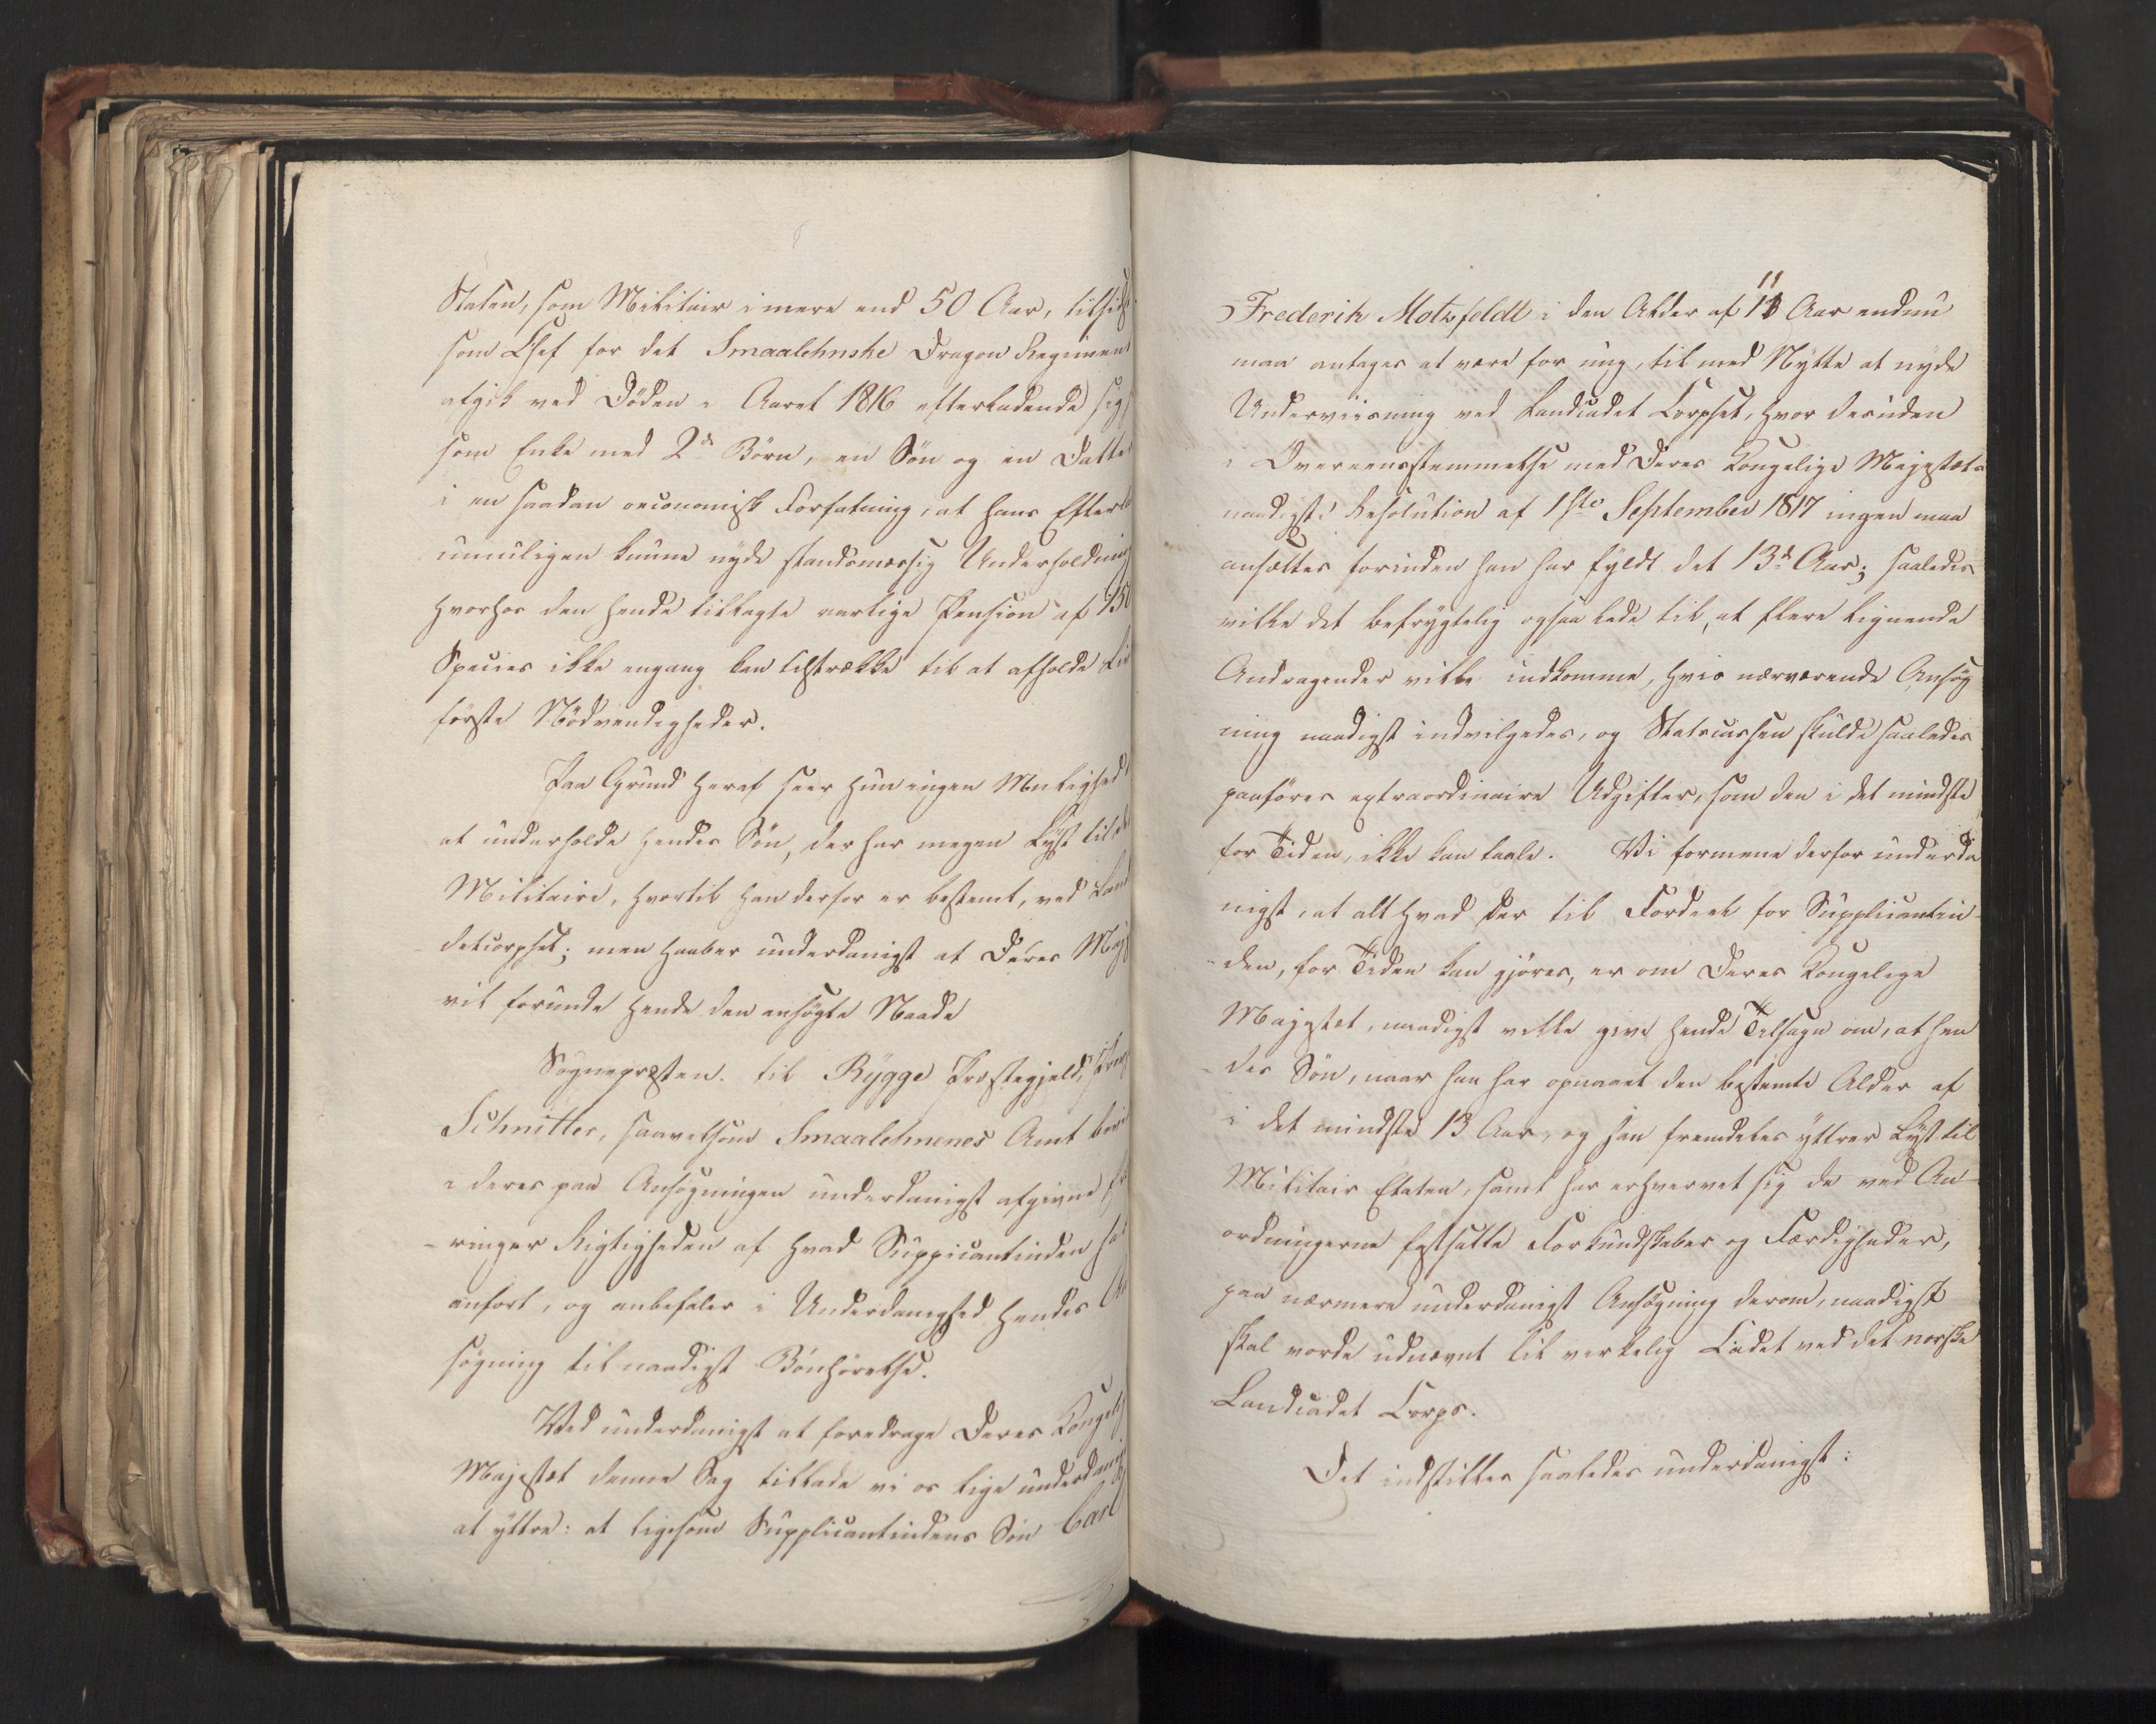 Staten, som Militair i mere end 50 Aar, tilsidst
som Chef for det Smaalehnske Dragon Regiment
afgik ved Döden i Aaret 1816 efterladende sig
som Enke med 2de Børn, en Søn og en Datter
i en saadan oeconomisk Forfatning, at hans Efterl
umuligen kunne nyde standsmæssig Underholdning
hvorhos den hende tillagte aarlige Pension af 150
Species ikke engang kan tilstrække til at afholde de
første Nödvendigheder.
Paa Grund heraf seer hun ingen Mulighed
at underholde hendes Søn, der har megen Lyst til det
Militaire, hvortil han derfor er bestemt, ved Land
detcorpset; men haaber underdanigst at Deres Maj
vil forunde hende den ansøgte Naade
Sognepræsten til Rygge Præstegjeld,
Schnitler, saavelsom Smaalehnenes Amt bevi
i deres paa Ansøgningen underdanigst afgivne
-ringer Rigtigheden af hvad Suppicantinden ha
anført, og anbefaler i Underdanighed hendes An
søgning til naadigst Bönhörelse.
Ved underdanigst at foredrage Deres Kongelig
Majestæt denne Sag tillade vi os lige underdanigst
at yttre: at ligesom Supplicantindens Søn Carl
Frederik Motzfeldt i den Alder af 11 Aar endnu
maa antages at være for ung, til med Nytte at nyde
Underviisning ved Landcadet Corpset, hvor desuden
i Overeensstemmelse med Deres Kongelige Majestæts
naadigste Resolution af 1ste September 1817 ingen maa
ansættes forinden han har fyldt det 13de Aar; saaledes
ville det befrygtelig ogsaa lede til, at flere lignende
Andragender ville indkomme, hvis nærværende Ansøg
ning naadigst indvilgedes, og Statscassen skulde saaledes
paaføres extraordinaire Udgifter, som den i det mindste
for Tiden, ikke kan taale. Vi formene derfor underda
nigst, at alt hvad der til Fordeel for Supplicantin-
-den, for Tiden kan gjøres, er om Deres Kongelige
Majestæt, naadigst ville give hende Tilsagn om, at hen
-des Søn, naar han har opnaaet den bestemte Alder af
i det mindste 13 Aar, og han fremdeles yttrer Lyst til
Militair Etaten, samt har erhvervet sig de ved An-
ordningerne fastsatte Forkundskaber og Færdigheder,
paa nærmere underdanigst Ansøgning derom, naadigst
skal vorde udnævnt til virkelig Cadet ved det norske
Landcadet Corps.
Det indstilles saaledes underdanigst: